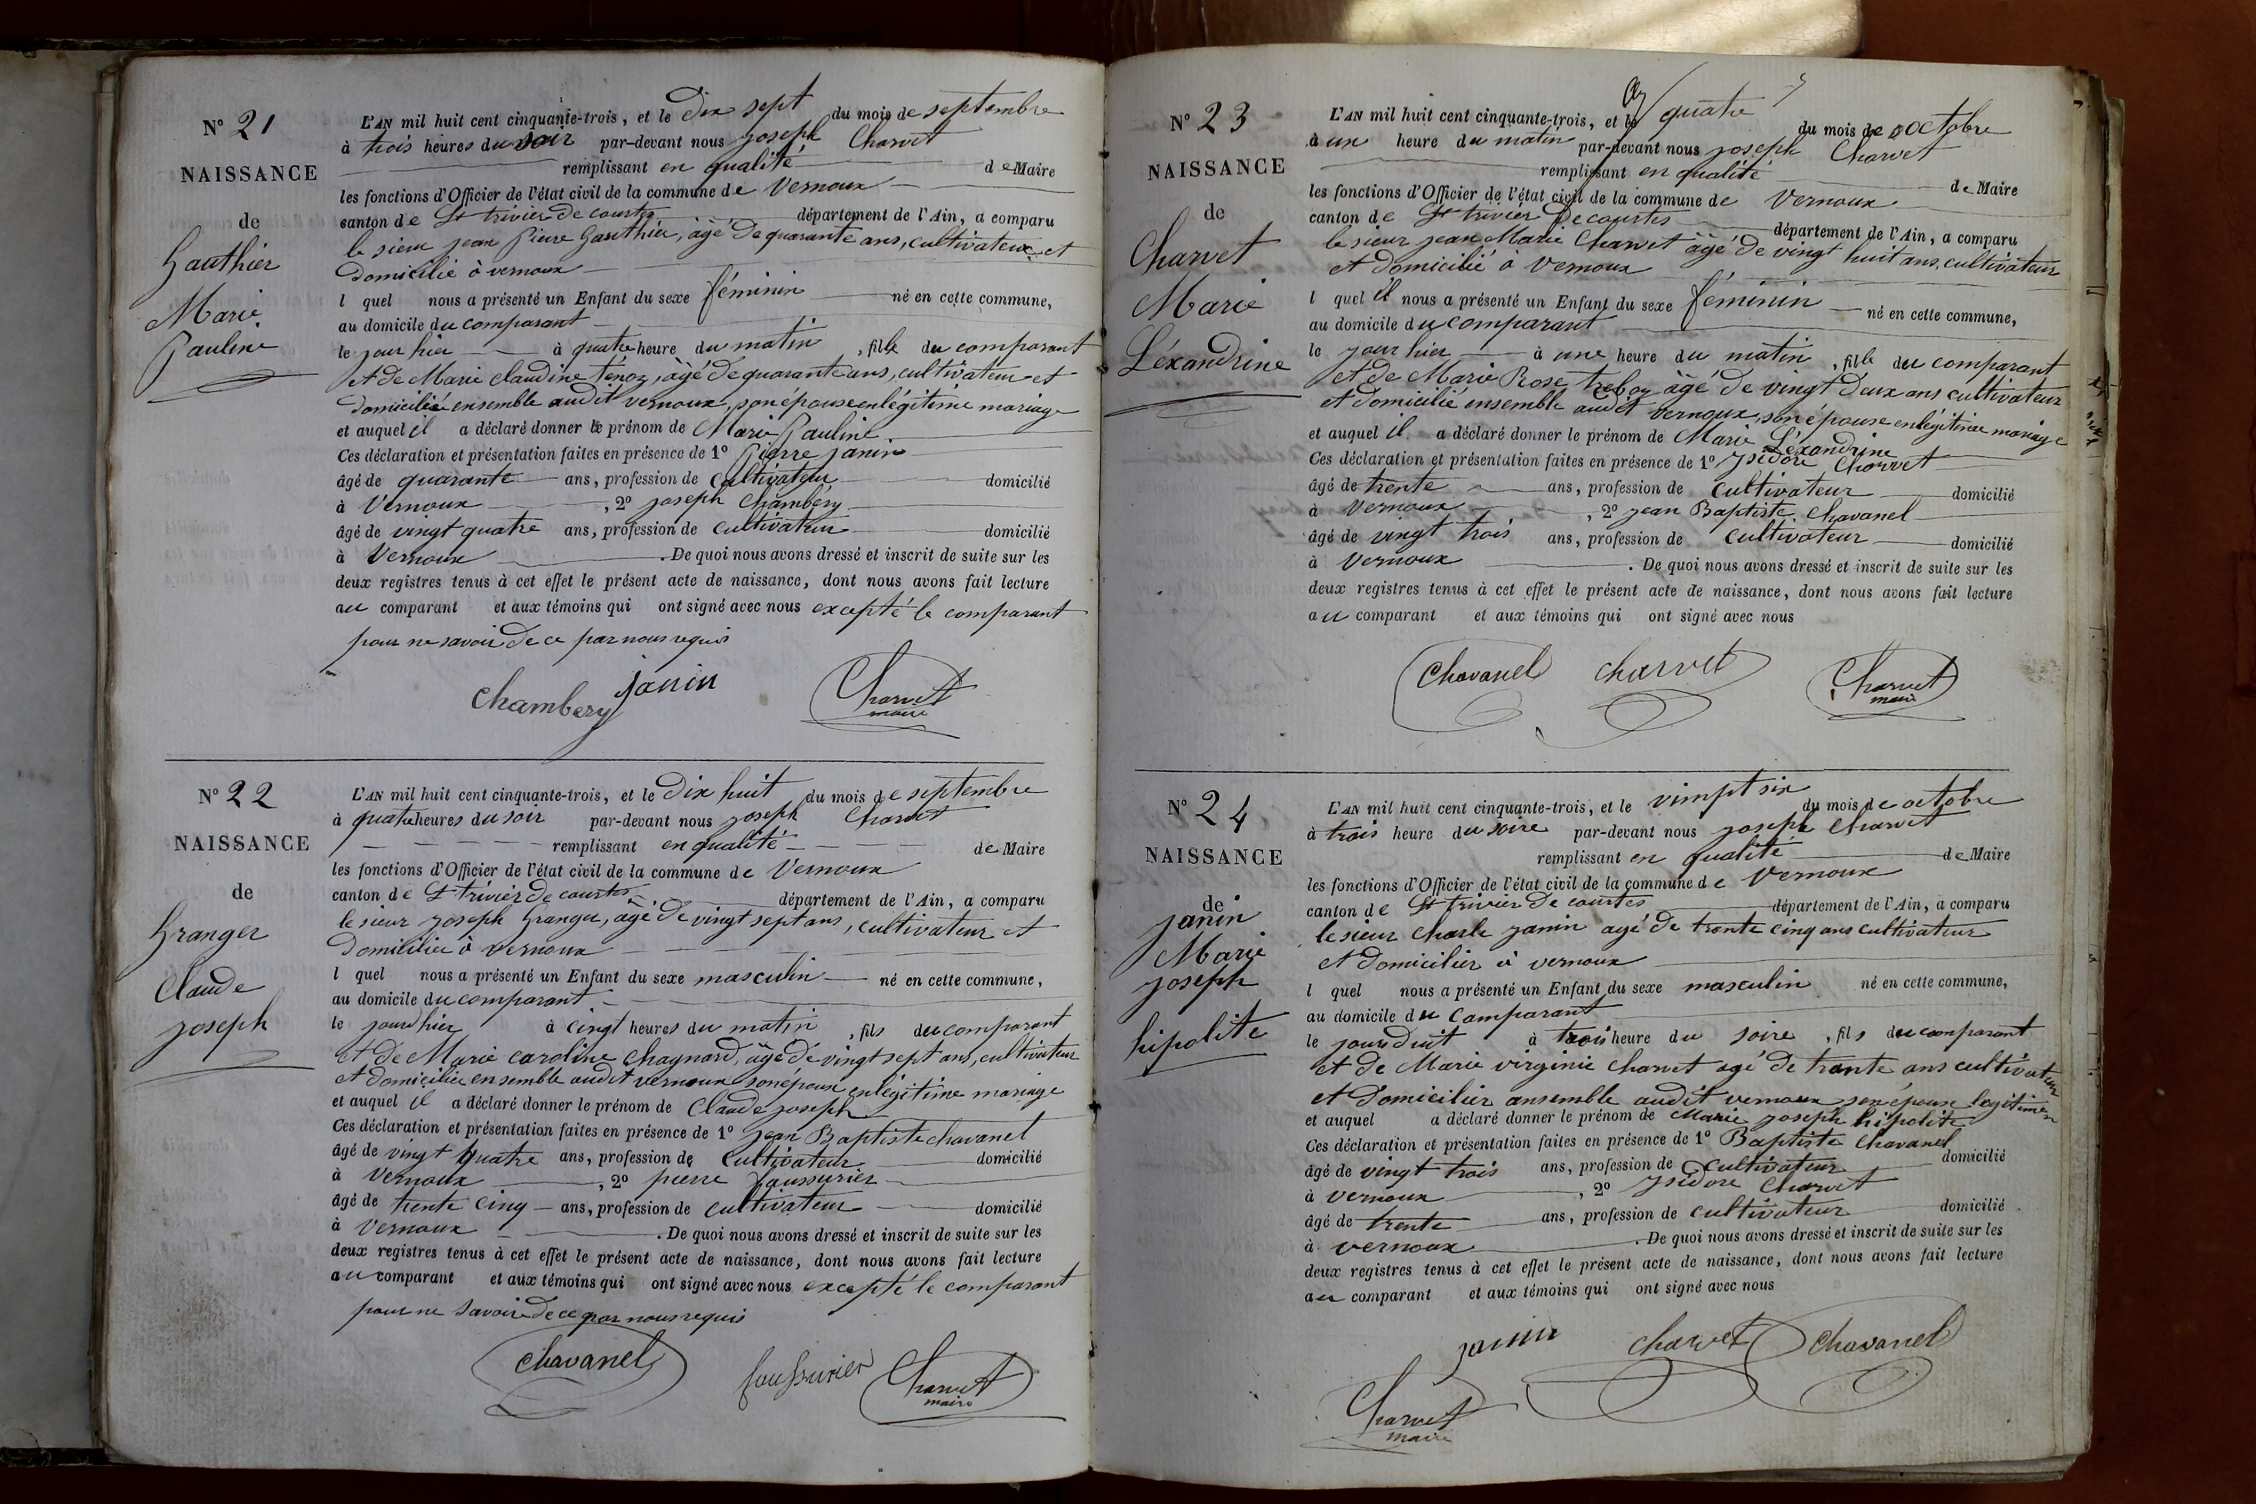 N° 21
NAISSANCE
de
Gauthier
Marie
Pauline
L'AN mil huit cent cinquante-trois, et le dix sept du mois de septembre
à trois heures du soir par-devant nous joseph Charvet
remplissant en qualité de Maire
les fonctions d'Officier de l'état civil de la commune de Vernoux
canton de St trivier de courtes département de l'Ain, a comparu
le sieur jean Pierre Gauthier, âgé de quarante ans, cultivateur et
domicilié à vernoux
l quel nous a présenté un Enfant du sexe féminin né en cette commune,
au domicile du comparant
le jour hier à quatre heure du matin, fille du comparant
et de Marie Claudine Ténoz, âgé de quarante ans, cultivateur et
domicilié ensemble audit vernoux, son épouse en légitime mariage
et auquel il a déclaré donner le prénom de Marie Pauline.
Ces déclaration et présentation faites en présence de 1° Pierre janin
âgé de quarante ans, profession de cultivateur domicilié
à Vernoux, 2° joseph Chambéry
âgé de vingt quatre ans, profession de cultivateur domicilié
à Vernoux. De quoi nous avons dressé et inscrit de suite sur les
deux registres tenus à cet effet le présent acte de naissance, dont nous avons fait lecture
au comparant et aux témoins qui ont signé avec nous excepté le comparant
pour ne savoir de ce par nous requis
Chambery janin Charvet
maire
N° 22
NAISSANCE
de
Granger
Claude
joseph
L'AN mil huit cent cinquante-trois, et le dix huit du mois de septembre
à quatre heures du soir par-devant nous joseph Charvet
remplissant en qualité de Maire
les fonctions d'Officier de l'état civil de la commune de Vernoux
canton de St trivier de courtes département de l'Ain, a comparu
le sieur joseph Granger, âgé de vingt sept ans, cultivateur et
domicilié à vernoux
l quel nous a présenté un Enfant du sexe masculin né en cette commune,
au domicile du comparant
le jour hier à cingt heures du matin, fils du comparant
et de Marie caroline Chagnard, âgé de vingt sept ans, cultivateur
et domicilié ensemble audit vernoux son épouse en légitime mariage
et auquel il a déclaré donner le prénom de Claude joseph
Ces déclaration et présentation faites en présence de 1° jean Baptiste chavanel
âgé de vingt quatre ans, profession de cultivateur domicilié
à Vernoux, 2° pierre faussurier
âgé de trente cinq ans, profession de cultivateur domicilié
à Vernoux. De quoi nous avons dressé et inscrit de suite sur les
deux registres tenus à cet effet le présent acte de naissance, dont nous avons fait lecture
au comparant et aux témoins qui ont signé avec nous excepté le comparant
pour ne savoir de ce par nous requis
chavanel faussurier Charvet
maire
N° 23
NAISSANCE
de
Charvet
Marie
Léxandrine
L'AN mil huit cent cinquante-trois, et le quatre du mois de octobre
à un heure du matin par-devant nous joseph Charvet
remplissant en qualité de Maire
les fonctions d'Officier de l'état civil de la commune de Vernoux
canton de St trivier de courtes département de l'Ain, a comparu
le sieur jean Marie Charvet âgé de vingt huit ans, cultivateur
et domicilié à Vernoux
l quel il nous a présenté un Enfant du sexe féminin né en cette commune,
au domicile du comparant
le jour hier à une heure du matin, fille du comparant
et de Marie Rose treboz âgé de vingt deux ans cultivateur
et domicilié ensemble audit vernoux, son épouse en légitime mariage
et auquel il a déclaré donner le prénom de Marie Léxandrine
Ces déclaration et présentation faites en présence de 1° ysidore Charvet
âgé de trente ans, profession de cultivateur domicilié
à Vernoux, 2° jean Baptiste Chavanel
âgé de vingt trois ans, profession de cultivateur domicilié
à Vernoux. De quoi nous avons dressé et inscrit de suite sur les
deux registres tenus à cet effet le présent acte de naissance, dont nous avons fait lecture
au comparant et aux témoins qui ont signé avec nous
Chavanel charvet Charvet
maire
N° 24
NAISSANCE
de
janin
Marie
joseph
hipolite
L'AN mil huit cent cinquante-trois, et le vimpt six du mois de octobre
à trois heure du soire par-devant nous joseph Charvet
remplissant en qualité de Maire
les fonctions d'Officier de l'état civil de la commune de Vernoux
canton de St trivier de courtes département de l'Ain, a comparu
le sieur Charle janin agé de trente cinq ans cultivateur
et domicilier à vernoux
l quel nous a présenté un Enfant du sexe masculin né en cette commune,
au domicile du comparant
le jourduit à trois heure du soire, fils du comparant
et de Marie virginie Charvet agé de trante ans cultivateur
et domicilier ansemble audit vernoux son épouse legitime
et auquel a déclaré donner le prénom de Marie joseph hipolite
Ces déclaration et présentation faites en présence de 1° Baptiste Chavanel
âgé de vingt trois ans, profession de cultivateur domicilié
à vernoux, 2° ysidore Charvet
âgé de trente ans, profession de cultivateur domicilié
à vernoux. De quoi nous avons dressé et inscrit de suite sur les
deux registres tenus à cet effet le présent acte de naissance, dont nous avons fait lecture
au comparant et aux témoins qui ont signé avec nous
janin charvet chavanel
Charvet
maire